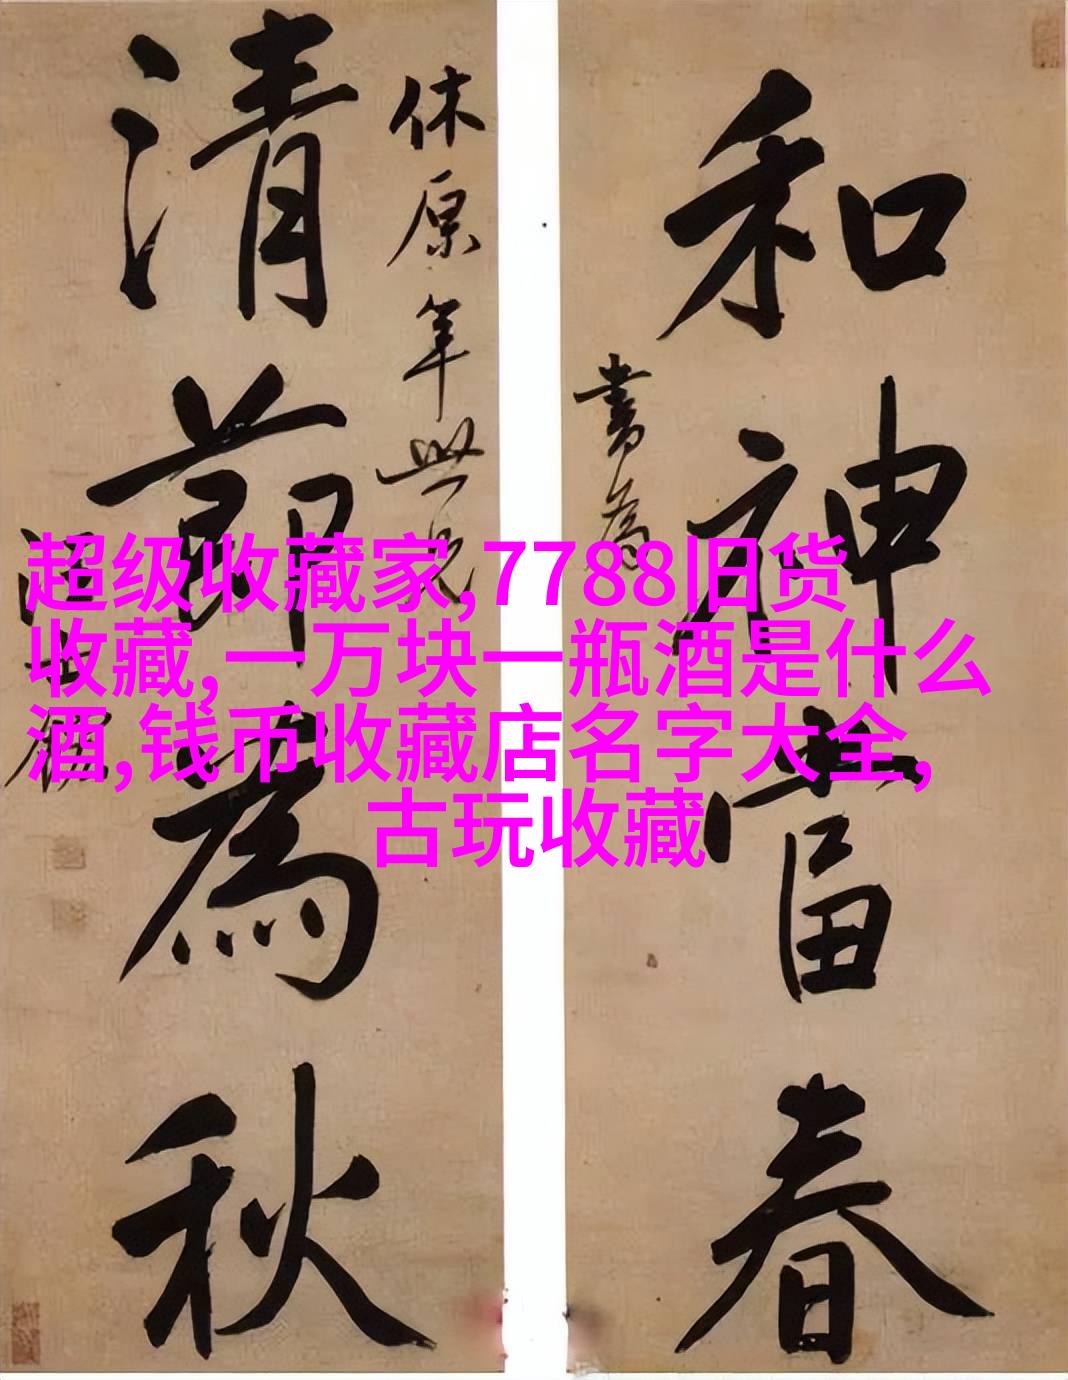 和神當春
書為
休原年世兄
清節為秋
超级收藏家,7788旧货
收藏, 一万块一瓶酒是什么
酒,钱币收藏店名字大全,
古玩收藏